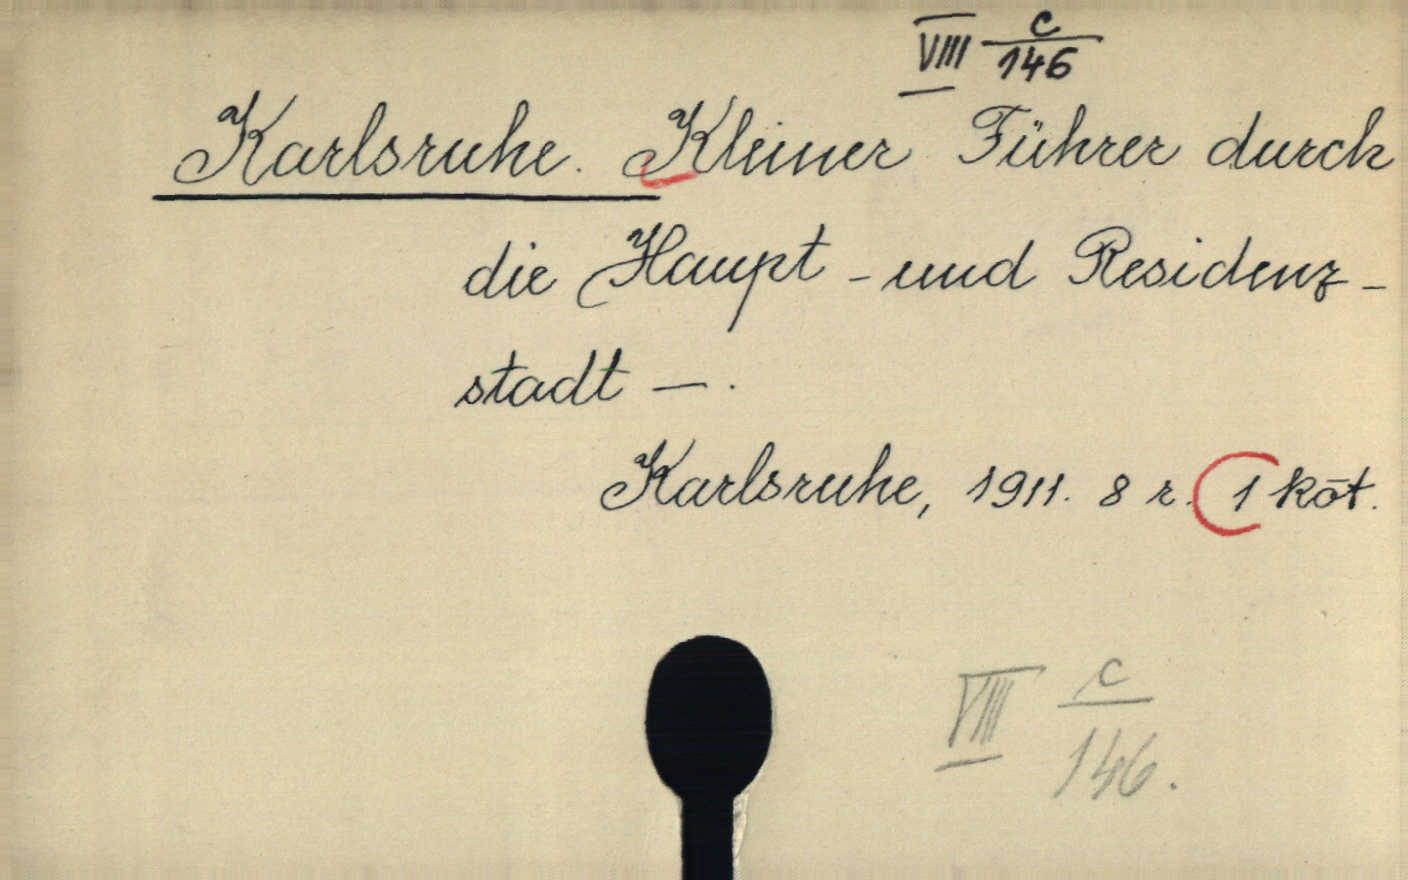 VIII c/146
Karlsruhe. Kleiner Führer durch
die Haupt- und Residenz-
stadt —.
Karlsruhe, 1911. 8 r. 1 köt.
VIII c/146.